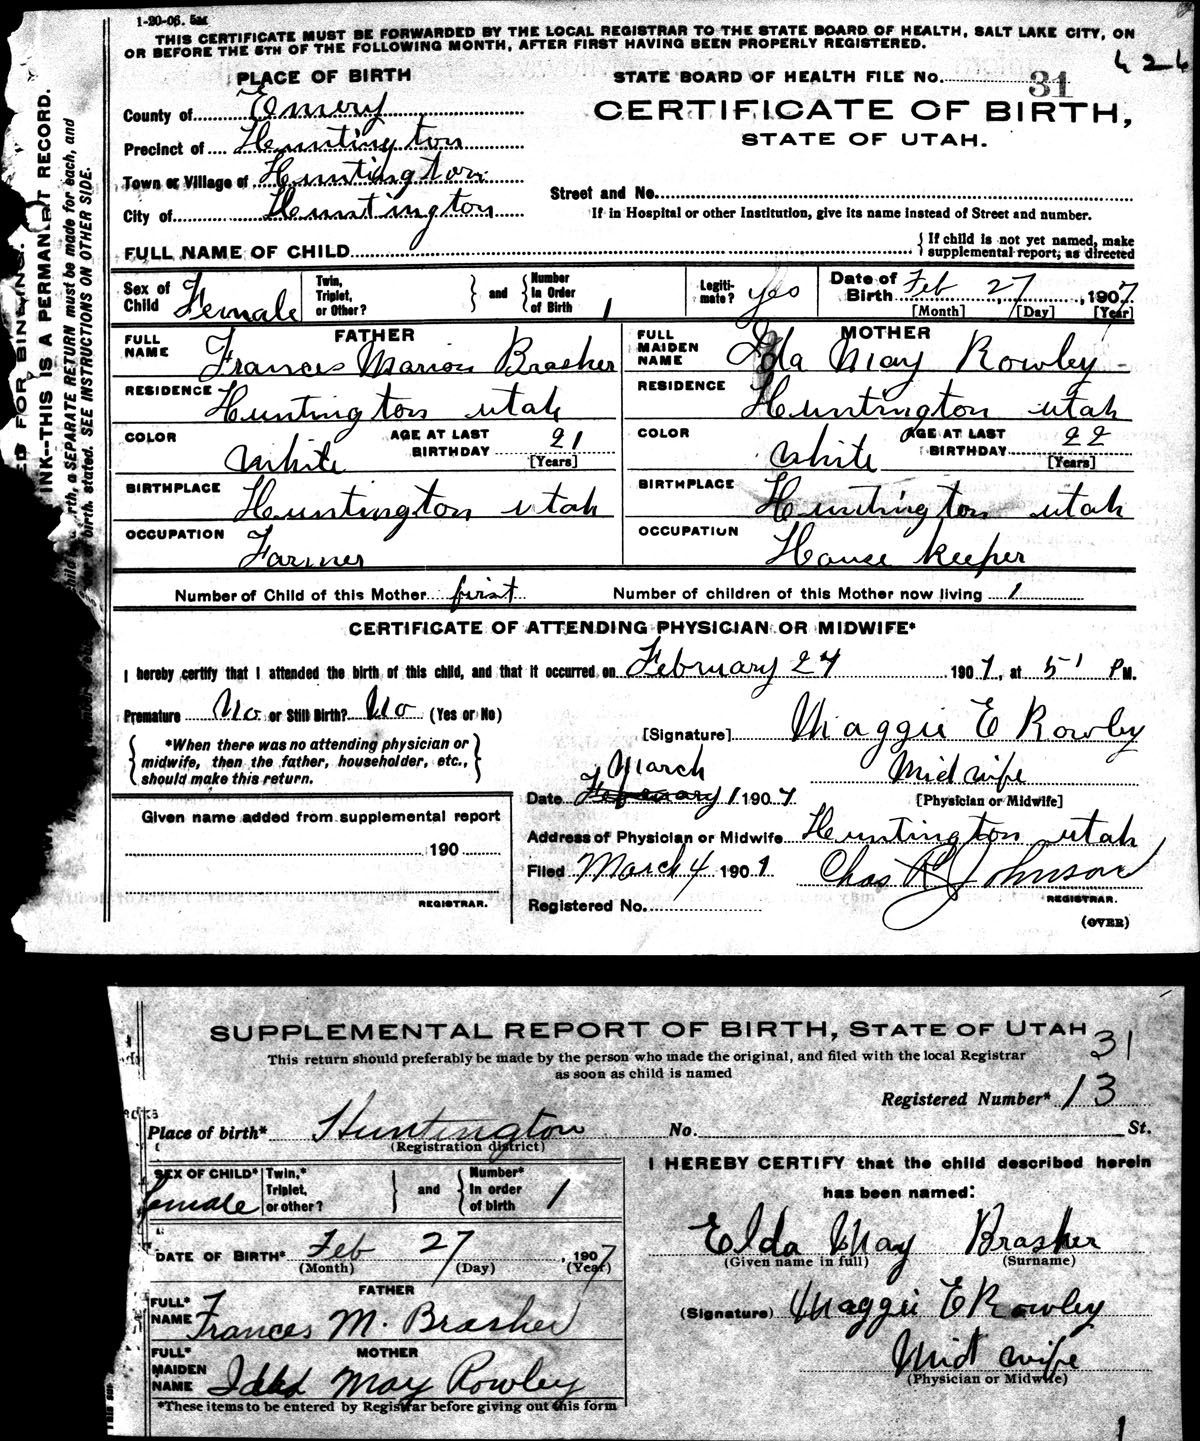 1-20-06. 5M
THIS CERTIFICATE MUST BE FORWARDED BY THE LOCAL REGISTRAR TO THE STATE BOARD OF HEALTH, SALT LAKE CITY, ON
OR BEFORE THE 5TH OF THE FOLLOWING MONTH, AFTER FIRST HAVING BEEN PROPERLY REGISTERED.
426
PLACE OF BIRTH
STATE BOARD OF HEALTH FILE No. 31
County of Emery
CERTIFICATE OF BIRTH,
Precinct of Huntington
STATE OF UTAH.
Town or Village of Huntington
Street and No.
City of Huntington
If in Hospital or other Institution, give its name instead of Street and number.
FULL NAME OF CHILD
{ If child is not yet named, make
supplemental report, as directed
Sex of Child Female
Twin, Triplet, or Other? } and { Number in Order of Birth 1
Legiti-mate? yes
Date of Birth Feb 27, 1907
[Month] [Day] [Year]
FATHER
FULL NAME Frances Marion Brasher
RESIDENCE Huntington utah
COLOR White
AGE AT LAST BIRTHDAY 21 [Years]
BIRTHPLACE Huntington utah
OCCUPATION Farmer
MOTHER
FULL MAIDEN NAME Ida May Rowley
RESIDENCE Huntington utah
COLOR White
AGE AT LAST BIRTHDAY 22 [Years]
BIRTHPLACE Huntington utah
OCCUPATION House keeper
Number of Child of this Mother first Number of children of this Mother now living 1
CERTIFICATE OF ATTENDING PHYSICIAN OR MIDWIFE*
I hereby certify that I attended the birth of this child, and that it occurred on February 27 1907, at 5 PM.
Premature No or Still Birth? No (Yes or No)
{ *When there was no attending physician or
midwife, then the father, householder, etc.,
should make this return. }
[Signature] Maggie E Rowley
Midwife
[Physician or Midwife]
March
Date February 1 1907
Address of Physician or Midwife Huntington utah
Filed March 4 1907 Chas R Johnson
REGISTRAR.
Registered No.
(OVER)
Given name added from supplemental report
190
REGISTRAR.
INK--THIS IS A PERMANENT RECORD.
a SEPARATE RETURN must be made for each, and
birth, stated. SEE INSTRUCTIONS ON OTHER SIDE.
FOR BINDING.
SUPPLEMENTAL REPORT OF BIRTH, STATE OF UTAH
31
This return should preferably be made by the person who made the original, and filed with the local Registrar
as soon as child is named
Registered Number* 13
Place of birth* Huntington No. St.
(Registration district)
SEX OF CHILD* Female
Twin,* Triplet, or other? } and { Number* in order of birth 1
DATE OF BIRTH* Feb 27, 1907
(Month) (Day) (Year)
FATHER
FULL* NAME Frances M. Brasher
MOTHER
FULL* MAIDEN NAME Ida May Rowley
*These items to be entered by Registrar before giving out this form
I HEREBY CERTIFY that the child described herein
has been named:
Elda May Brasher
(Given name in full) (Surname)
(Signature) Maggie E Rowley
Mid wife
(Physician or Midwife)
1